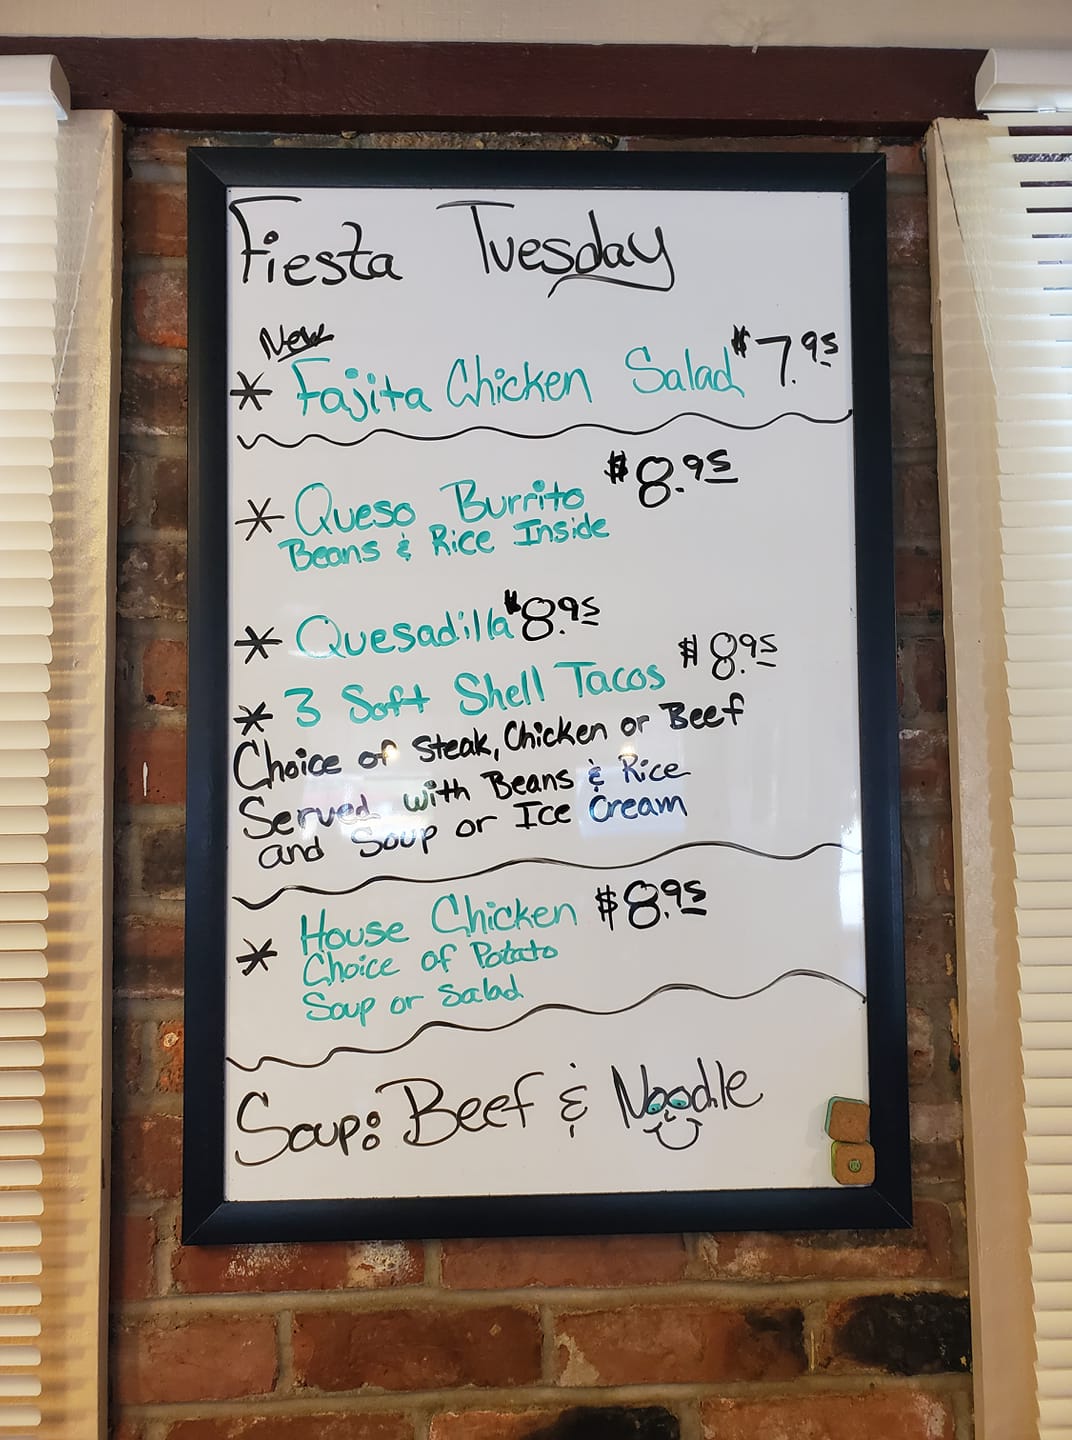 Fiesta Tuesday
New
* Fajita Chicken Salad $7.95
* Queso Burrito $8.95
Beans & Rice Inside
* Quesadilla $8.95
* 3 Soft Shell Tacos $8.95
Choice of Steak, Chicken or Beef
Served with Beans & Rice
and Soup or Ice Cream
* House Chicken $8.95
Choice of Potato
Soup or Salad
Soup: Beef & Noodle